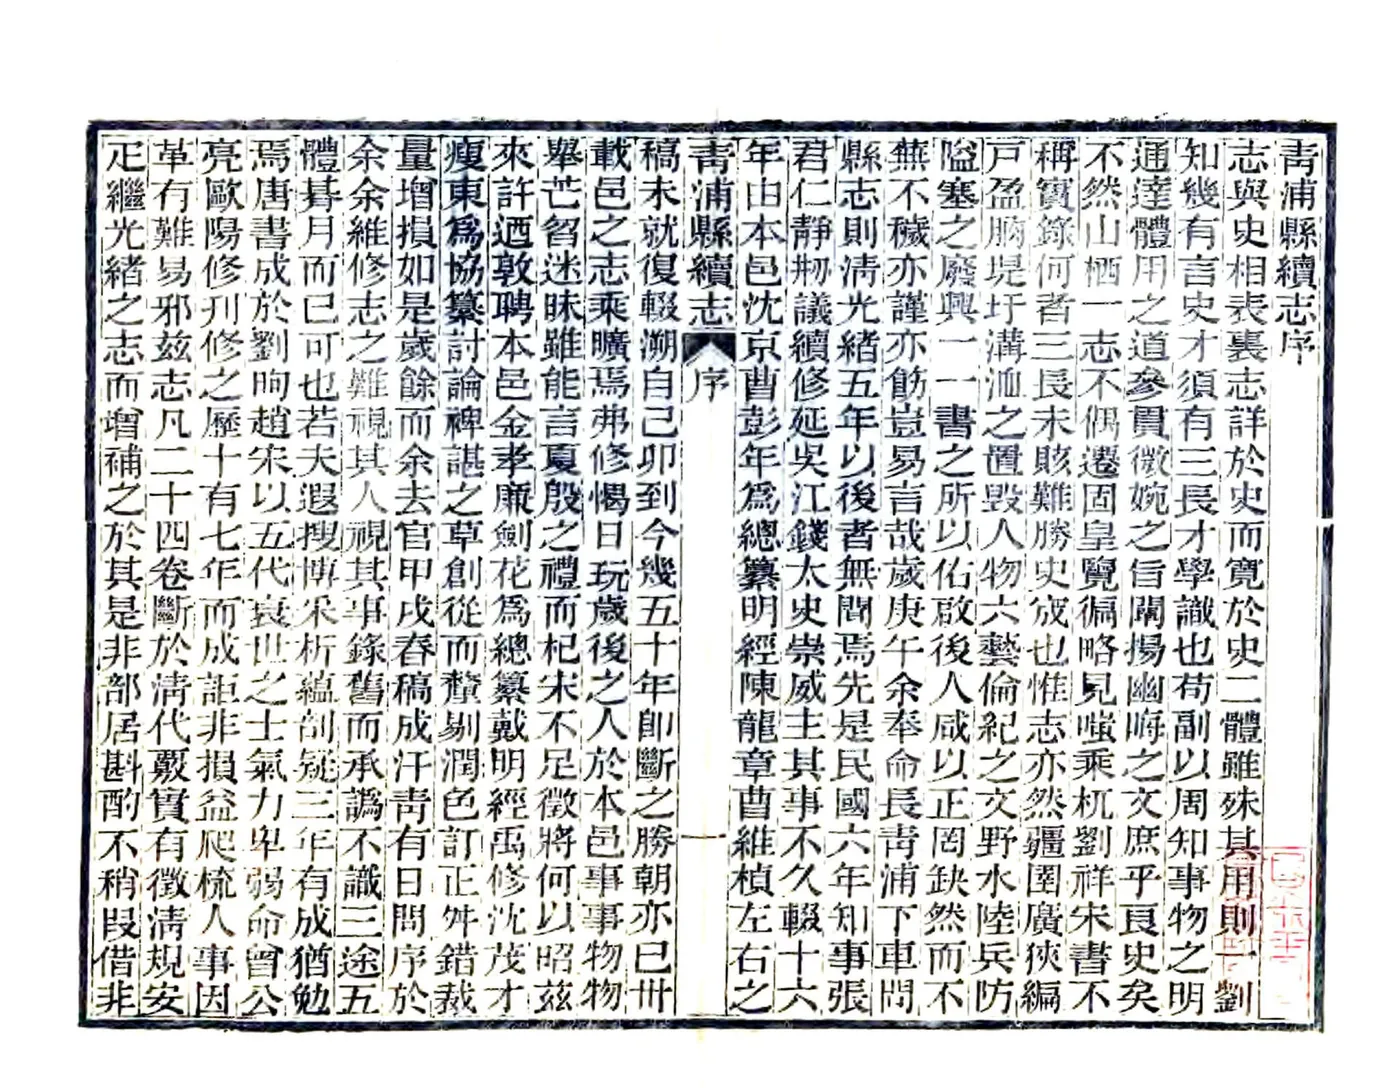 青浦縣續志序
志與史相表裏志詳於史而寬於史二體雖殊其用則一劉
知幾有言史才須有三長才學識也苟副以周知事物之明
通達體用之道參貫微婉之旨闡揚幽晦之文庶乎良史矣
不然山栖一志不偶遷固皇覽徧略見嗤乘杌劉祥宋書不
稱實錄何者三長未賅難勝史宬也惟志亦然疆圉廣狹編
戸盈朒堤圩溝洫之置毁人物六藝倫紀之文野水陸兵防
隘塞之廢興一一書之所以佑啟後人咸以正罔缺然而不
蕪不穢亦謹亦飭豈易言哉歲庚午余奉命長青浦下車問
縣志則淸光緒五年以後者無聞焉先是民國六年知事張
君仁靜刱議續修延吳江錢太史崇威主其事不久輟十六
年由本邑沈京曹彭年爲總纂明經陳龍章曹維楨左右之
青浦縣續志 序 一
稿未就復輟溯自己卯到今幾五十年卽斷之勝朝亦已卅
載邑之志乘曠焉弗修愒日玩歲後之人於本邑事事物物
舉芒曶迷昧雖能言夏殷之禮而杞宋不足徵將何以昭茲
來許迺敦聘本邑金孝廉劍花爲總纂戴明經禹修沈茂才
瘦東爲協纂討論裨諶之草創從而釐剔潤色訂正舛錯裁
量增損如是歲餘而余去官甲戌春稿成汗青有日問序於
余余維修志之難視其人視其事錄舊而承譌不識三途五
體朞月而已可也若夫遐搜博采析蘊剖疑三年有成猶勉
焉唐書成於劉昫趙宋以五代衰世之士氣力卑弱命曾公
亮歐陽修刋修之歷十有七年而成詎非損益爬梳人事因
革有難易邪兹志凡二十四卷斷於淸代覈實有徵淸規安
疋繼光緒之志而增補之於其是非部居斟酌不稍叚借非